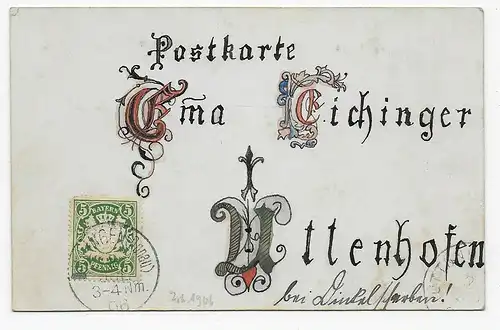 Postkarte
Em̄a Eichinger
Uttenhofen
bei Dinkelscherben!
BAYERN
5 5
5 PFENNIG 5
3-4 Nm.
06
2.2.1906